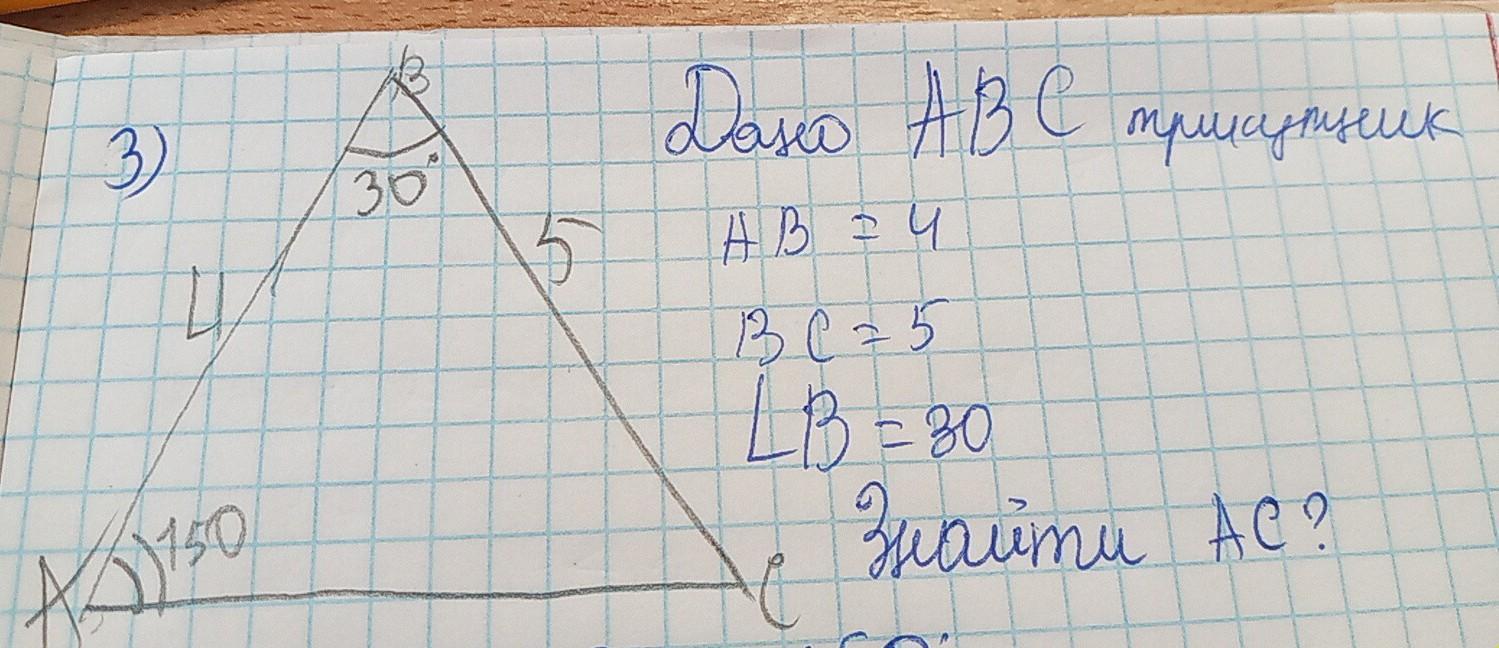 3)
B
30°
4
5
A
150
C
Дано ABC трикутник
AB = 4
BC = 5
∟B = 30
Знайти AC?